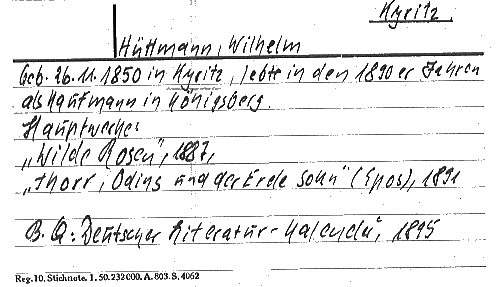 Kyritz.
Hüttmann, Wilhelm
Geb. 26.11.1850 in Kyritz, lebte in den 1890er Jahren
als Kaufmann in Königsberg.
Hauptwerke:
„Wilde Rosen", 1887,
„Thorr, Odins und der Erde Sohn" (Epos), 1891
B. Q.: Deutscher Literatur-Kalender, 1895
Reg. 10. Stichnote. 1. 50. 232000. A. 803. S. 4062